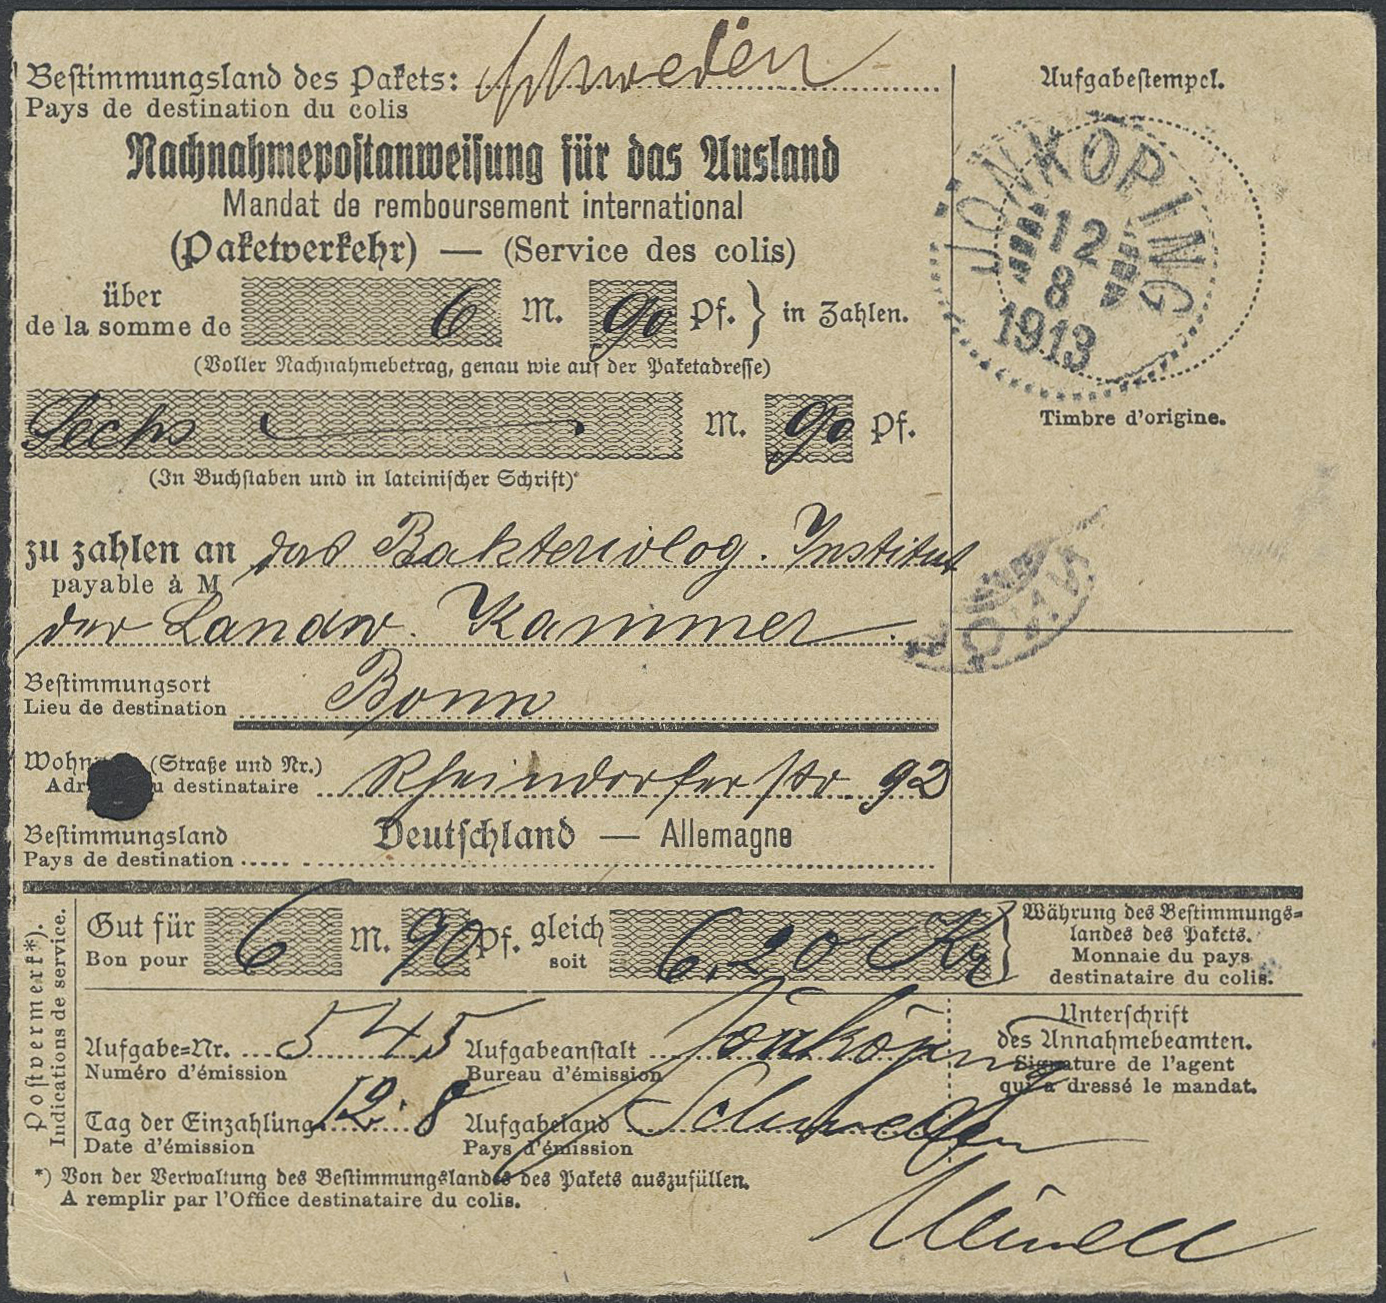 Bestimmungsland des Pakets: Schweden
Pays de destination du colis
Nachnahmepostanweisung für das Ausland
Mandat de remboursement international
(Paketverkehr) — (Service des colis)
über
de la somme de 6 M. 90 Pf. } in Zahlen.
(Voller Nachnahmebetrag, genau wie auf der Paketadresse)
Sechs M. 90 Pf.
(In Buchstaben und in lateinischer Schrift)
zu zahlen an das Bakteriolog. Institut
payable à M
der Landw. Kammer
Bestimmungsort
Lieu de destination Bonn
Wohn (Straße und Nr.) Rheindorferstr. 92
Adr u destinataire
Bestimmungsland
Pays de destination
Deutschland — Allemagne
Aufgabestempel.
JÖNKÖPING
12
8
1913
Timbre d'origine.
Postvermerk*).
Indications de service.
Gut für
Bon pour
6 M. 90 Pf. gleich
soit
6,20 Kr
Währung des Bestimmungs=
landes des Pakets.
Monnaie du pays
destinataire du colis.
Aufgabe=Nr. 545
Numéro d'émission
Aufgabeanstalt Jönköping
Bureau d'émission
Tag der Einzahlung 12. 8
Date d'émission
Aufgabeland Schweden
Pays d'émission
Unterschrift
des Annahmebeamten.
Signature de l'agent
qui a dressé le mandat.
*) Von der Verwaltung des Bestimmungslandes des Pakets auszufüllen.
A remplir par l'Office destinataire du colis.